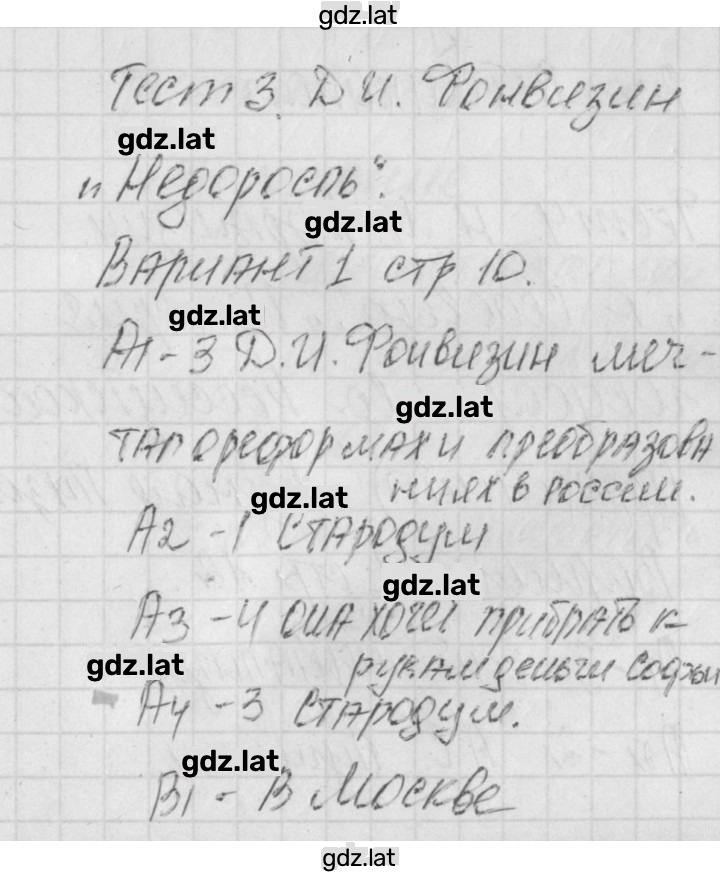 gdz.lat
Тест 3. Д И. Фонвизин
gdz.lat
"Недоросль".
gdz.lat
Вариант 1 стр 10.
gdz.lat
А1 - 3 Д.И. Фонвизин меч-
gdz.lat
тал о реформах и преобразова
gdz.lat
ниях в России.
А2 - 1 Стародум
gdz.lat
А3 - 4 она хочет прибрать к
gdz.lat
рукам деньги Софьи
А4 - 3 Стародум.
gdz.lat
В1 - В Москве
gdz.lat